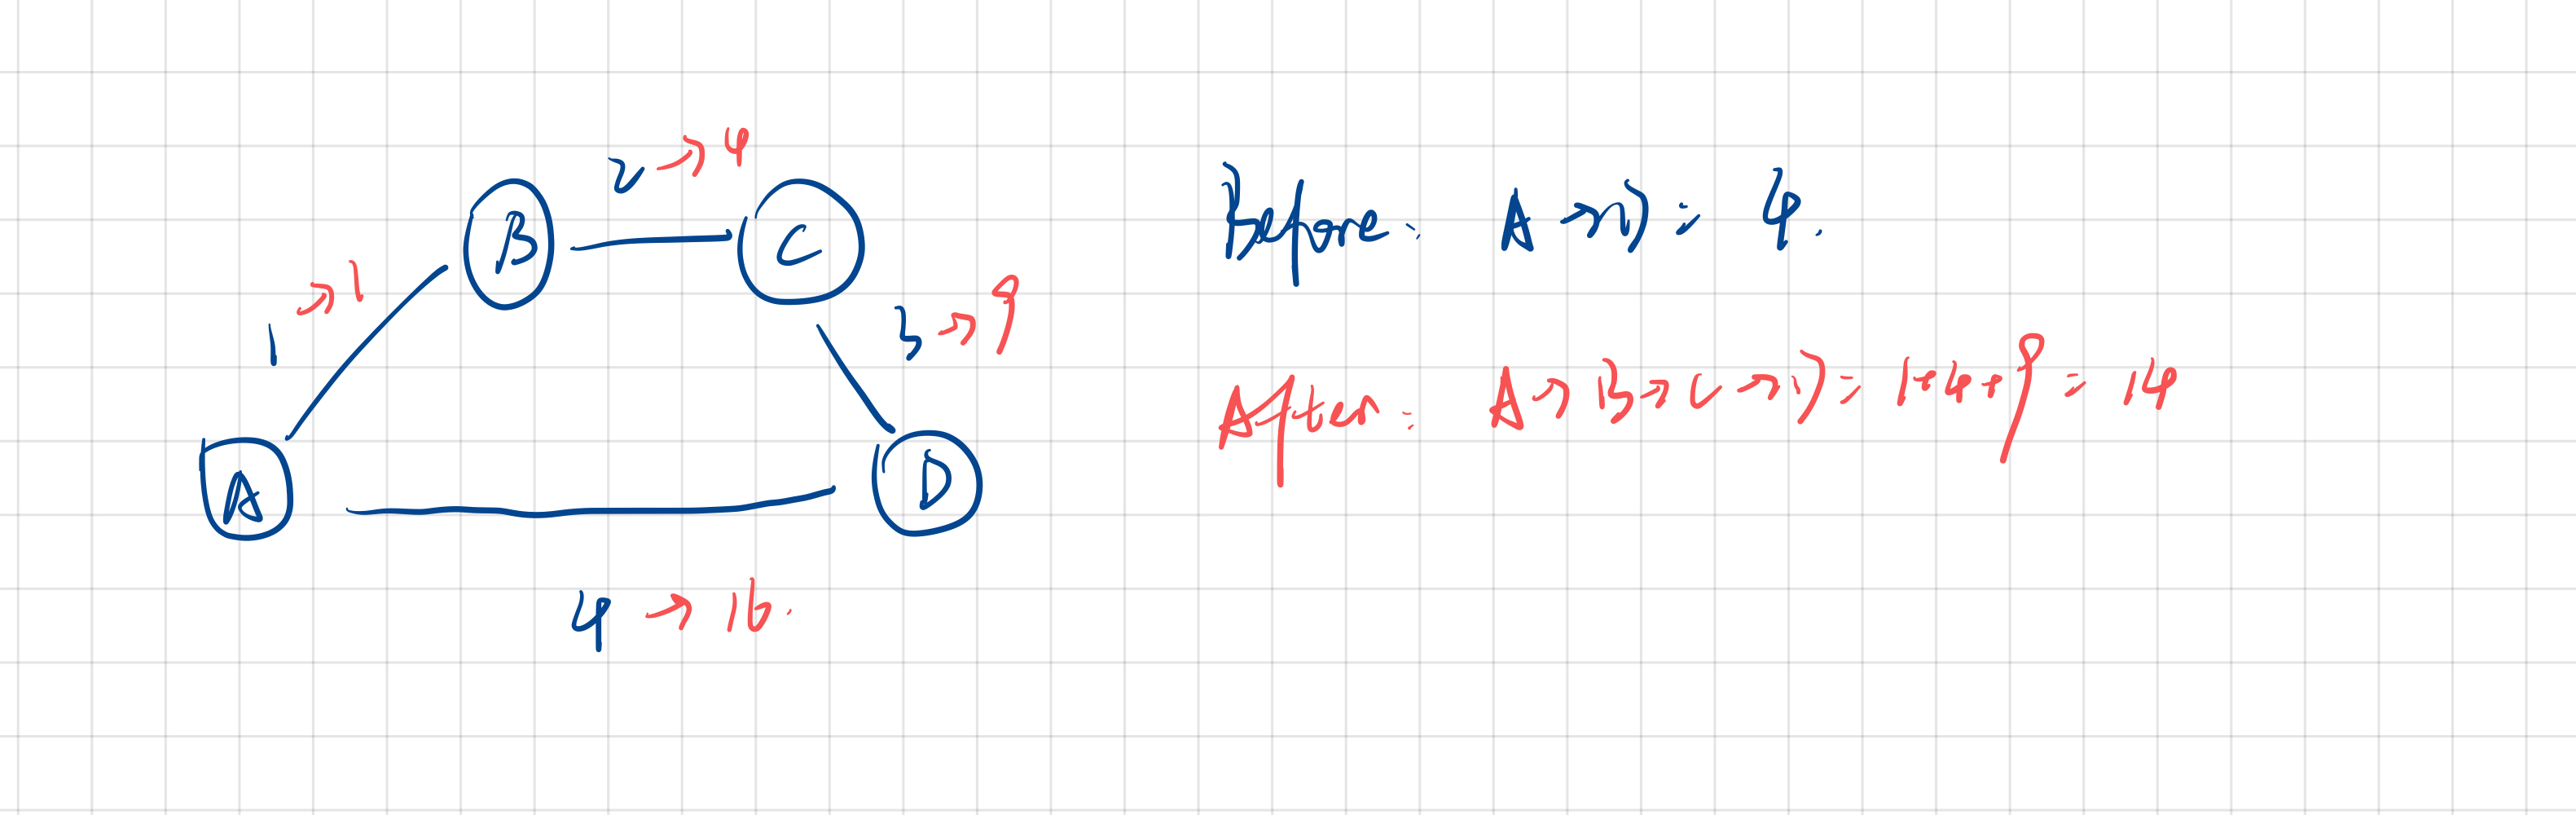 2 → 4
B
C
1 → 1
3 → 9
A
D
4 → 16.
Before: A → D = 4.
After: A → B → C → D = 1+4+9 = 14